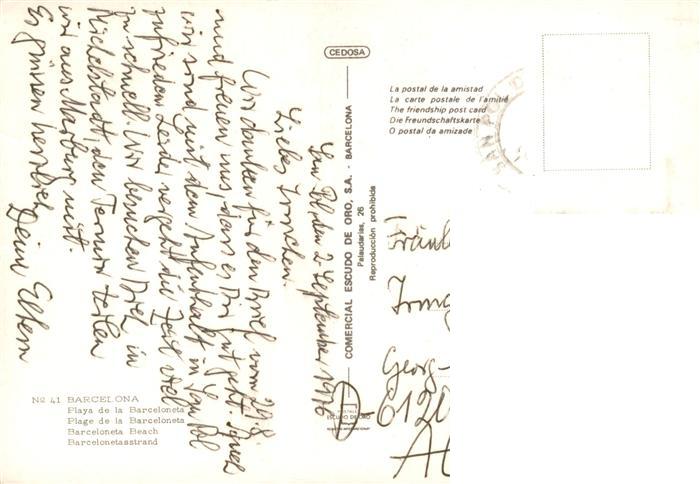 San Pol, den 2. September 1970
Liebes Irmchen.
Wir danken für den Brief vom 29.8.
und freuen uns, dass es Dir gut geht. Auch
wir sind mit dem Aufenthalt in San Pol
zufrieden. Leider vergeht die Zeit viel
zu schnell. Wir besuchen Dich in
Michelstadt, den Termin teilen
wir aus Marburg mit.
Es grüssen herzlich Deine Eltern
CEDOSA
COMERCIAL ESCUDO DE ORO, S.A. - BARCELONA
Palaudarias, 26
Reproducción prohibida
La postal de la amistad
La carte postale de l'amitié
The friendship post card
Die Freundschaftskarte
O postal da amizade
SAN POL D
Fräul
Irmg
Georg-
6120
ESCUDO DE ORO
Nº 41 BARCELONA
Playa de la Barceloneta
Plage de la Barceloneta
Barceloneta Beach
Barcelonetasstrand